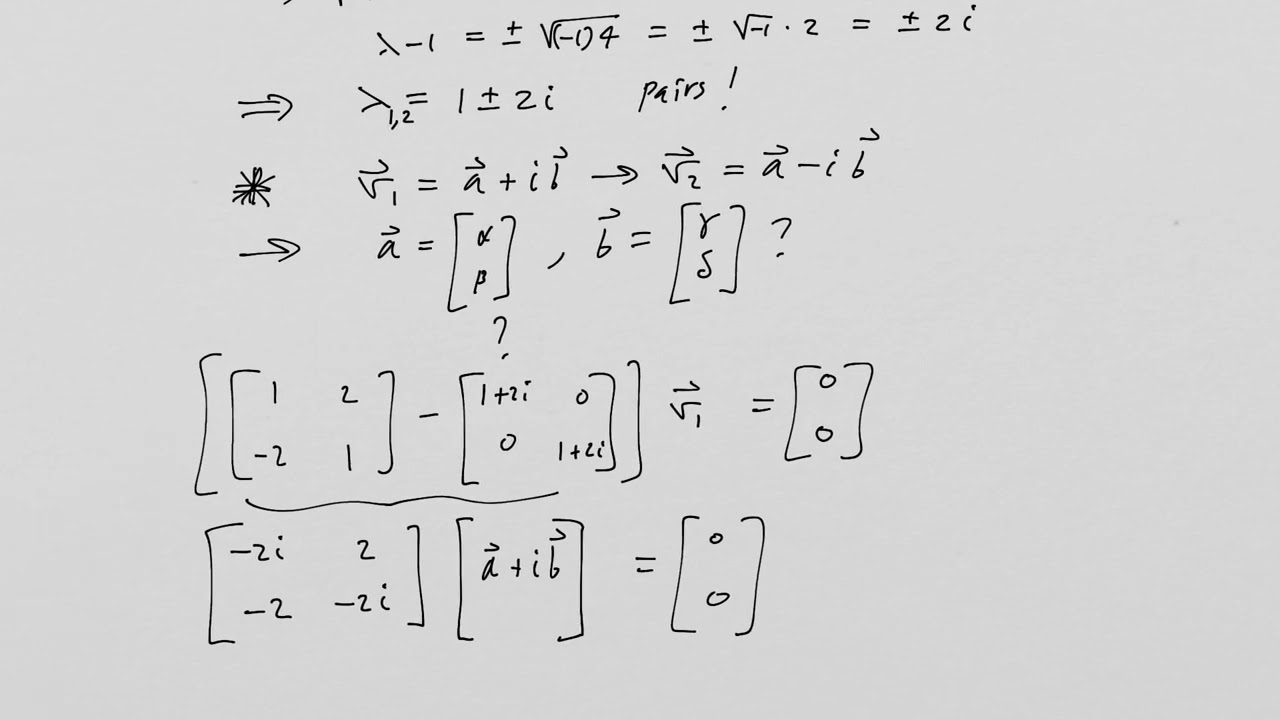 λ-1 = ± √(-1)4 = ± √-1 · 2 = ± 2i
⇒ λ1,2 = 1 ± 2i pairs!
* v⃗1 = a⃗ + i b⃗ → v⃗2 = a⃗ - i b⃗
→ a⃗ = [α β], b⃗ = [γ δ] ?
?
[[1 2 -2 1] - [1+2i 0 0 1+2i]] v⃗1 = [0 0]
[-2i 2 -2 -2i] [a⃗ + i b⃗] = [0 0]